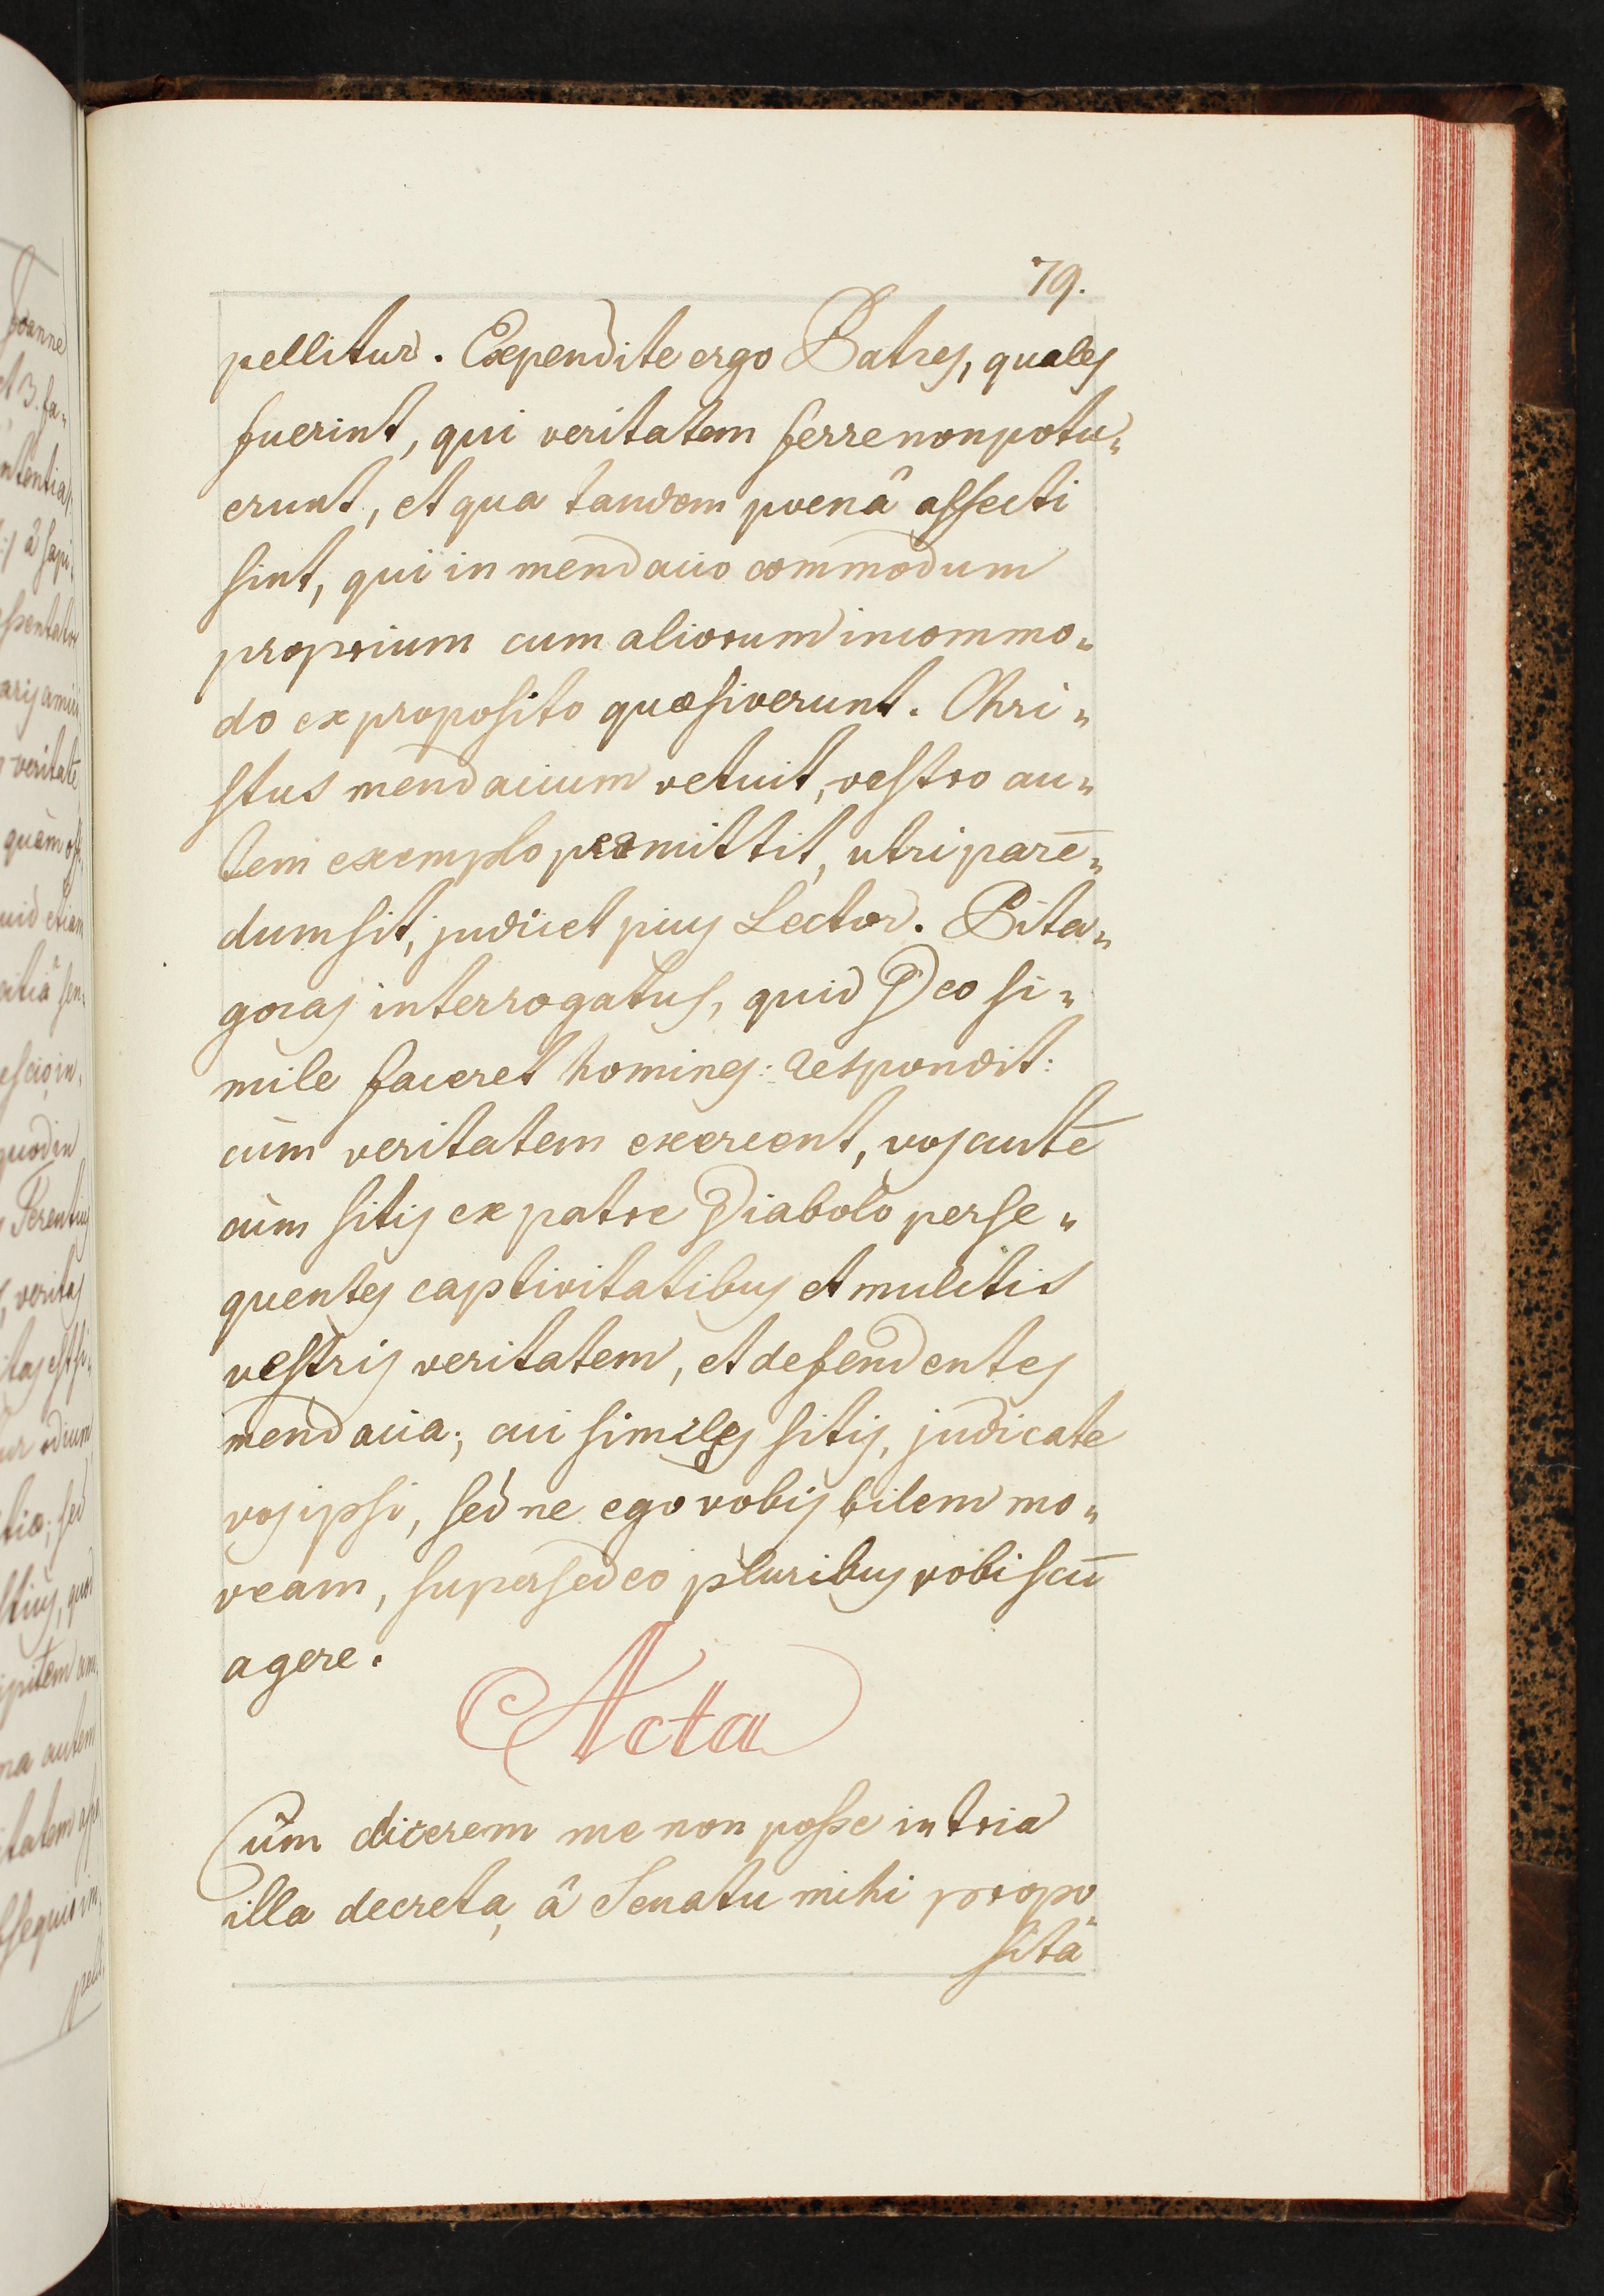 79.
pellitur. Expendite ergo Patres, quales
fuerint, qui veritatem ferre non potu„
erunt, et qua tandem poenâ affecti
sint, qui in mendacio commodum
proprium cum aliorum incommo„
do ex proposito quæsiverunt. Chri„
stus mendacium vetuit, vestro au„
tem exemplo permittit, utri parē„
dum sit, judicet pius Lector. Pita„
goras interrogatus, quid Deo si„
mile faceret homines: respondit:
cùm veritatem exercent, vos autē
cùm sitis ex patre Diabolo perse„
quentes captivitatibus et mulctis
vestris veritatem, et defendentes
mendacia; cui similes sitis, judicate
vos ipsi, sed ne ego vobis bilem mo„
veam, supersedeo pluribus vobiscū
agere.
Acta
Cùm dicerem me non posse in tria
illa decreta, â Senatu mihi propo„
sita